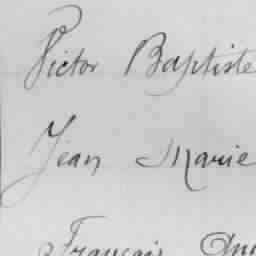 Victor Baptiste
Jean Marie
François